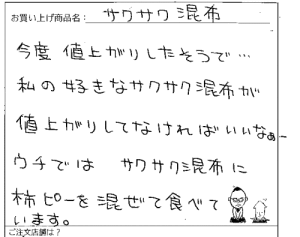 お買い上げ商品名： サクサク混布
今度 値上がりしたそうで…
私の好きなサクサク混布が
値上がりしてなければいいなぁー
ウチでは サクサク混布に
柿ピーを混ぜて食べて
います。
ご注文店舗は？